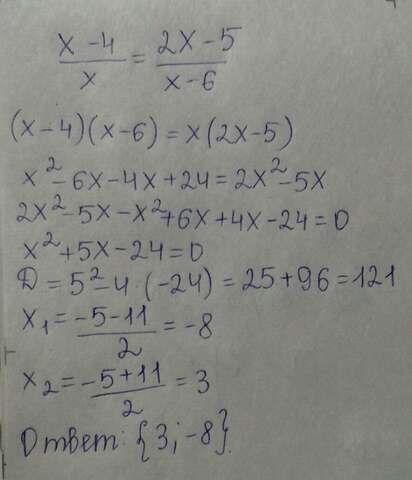 x-4/x = 2x-5/x-6
(x-4)(x-6) = x(2x-5)
x²-6x-4x+24=2x²-5x
2x²-5x-x²+6x+4x-24=0
x²+5x-24=0
D=5²-4·(-24)=25+96=121
x₁=-5-11/2=-8
x₂=-5+11/2=3
Ответ: {3;-8}.